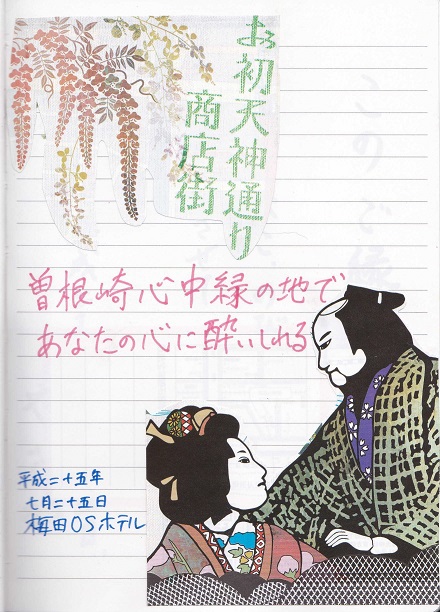 お初天神通り
商店街
曽根崎心中縁の地で
あなたの心に酔いしれる
平成二十五年
七月二十五日
梅田OSホテル